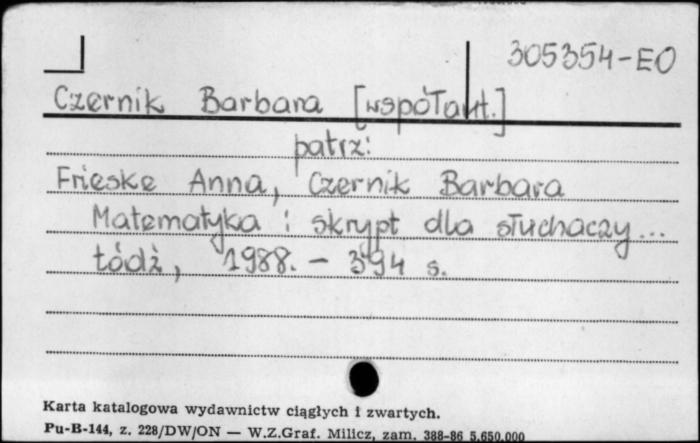 305354-EO
Czernik Barbara [współaut.]
patrz:
Frieske Anna, Czernik Barbara
Matematyka : skrypt dla słuchaczy...
Łódź, 1988. - 394 s.
Karta katalogowa wydawnictw ciągłych i zwartych.
Pu-B-144, z. 228/DW/ON — W.Z.Graf. Milicz, zam. 388-86 5.650.000